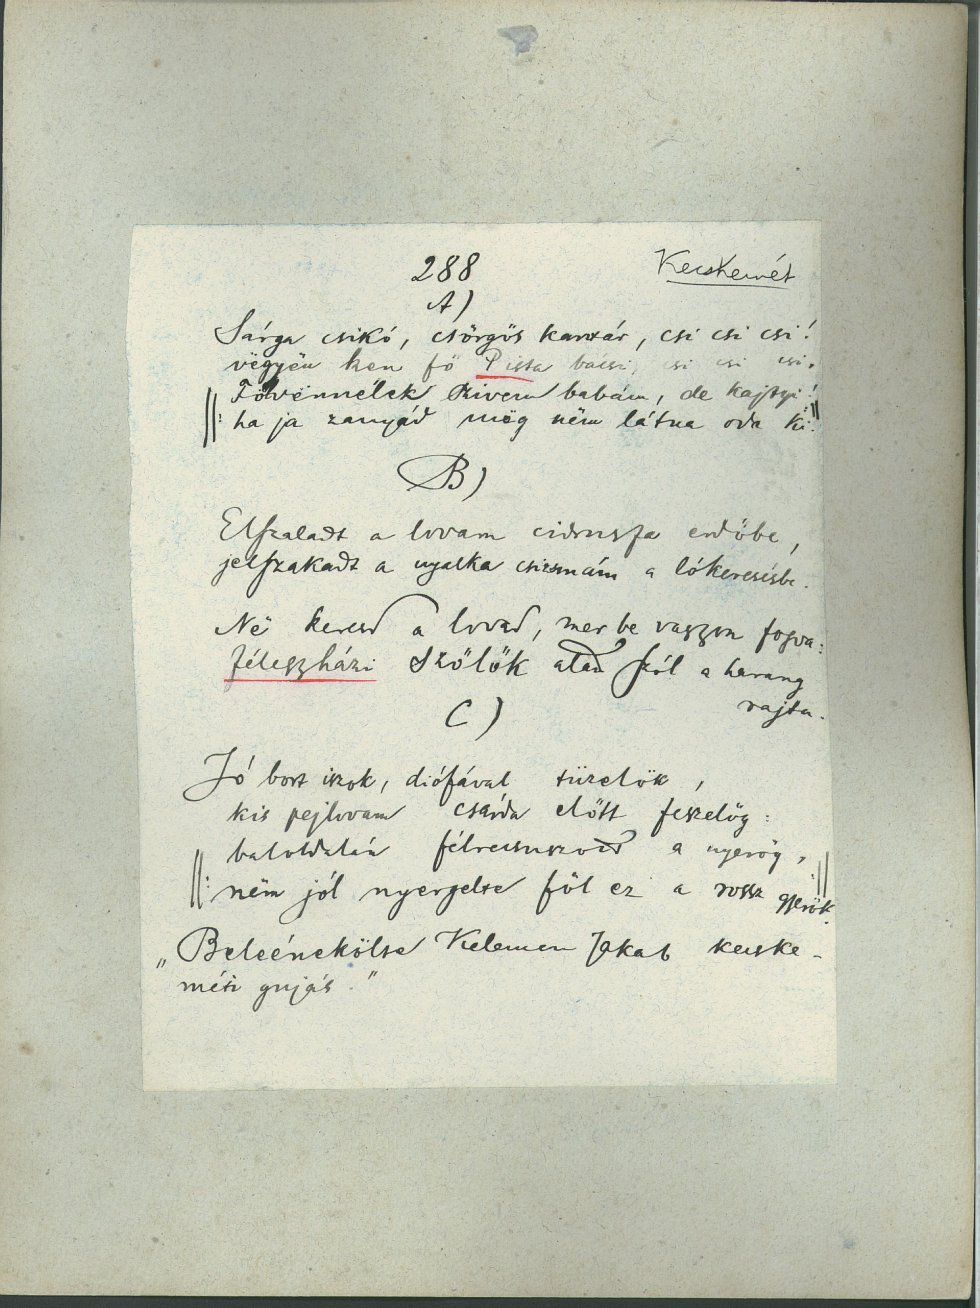 288
Kecskemét
A)
Sárga csikó, csörgős kantár, csi csi csi!
vëgyën ken fő Pista bácsi, csi csi csi.
||: Fölvënnélek szivem babám, de kajtyi!
ha ja zanyád mëg nëm látna oda ki. :||
B)
Elszaladt a lovam cidrusfa erdőbe,
jelszakadt a nyalka csizsmám a lókeresésbe.
Në keresd a lovad, mer be vagyon fogva:
féleszházi szőlők alatt szól a harang
rajta.
C)
Jó bort iszok, diófával tüzelök,
kis pejlovam csárda előtt feszelög:
baloldalán félrecsuszott a nyerög,
||: nëm jól nyergelte föl ez a rossz gyerök. :||
„Beleénekölte Kelemen Jakab kecske-
méti gujás."